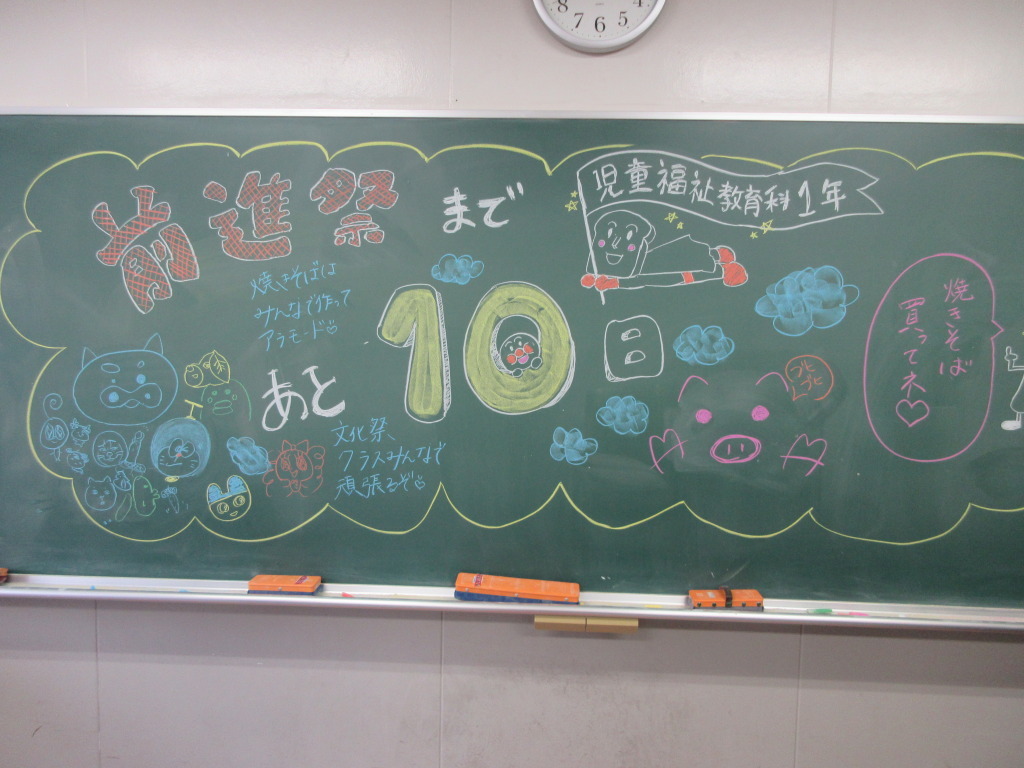 8 7 6 5 4
前進祭
まで
児童福祉教育科1年
焼きそばは
みんなで作って
アラモード♡
あと
10
日
文化祭
クラスみんなで
頑張るぞ♡
ブヒ
ブヒ
焼きそば
買ってネ♡